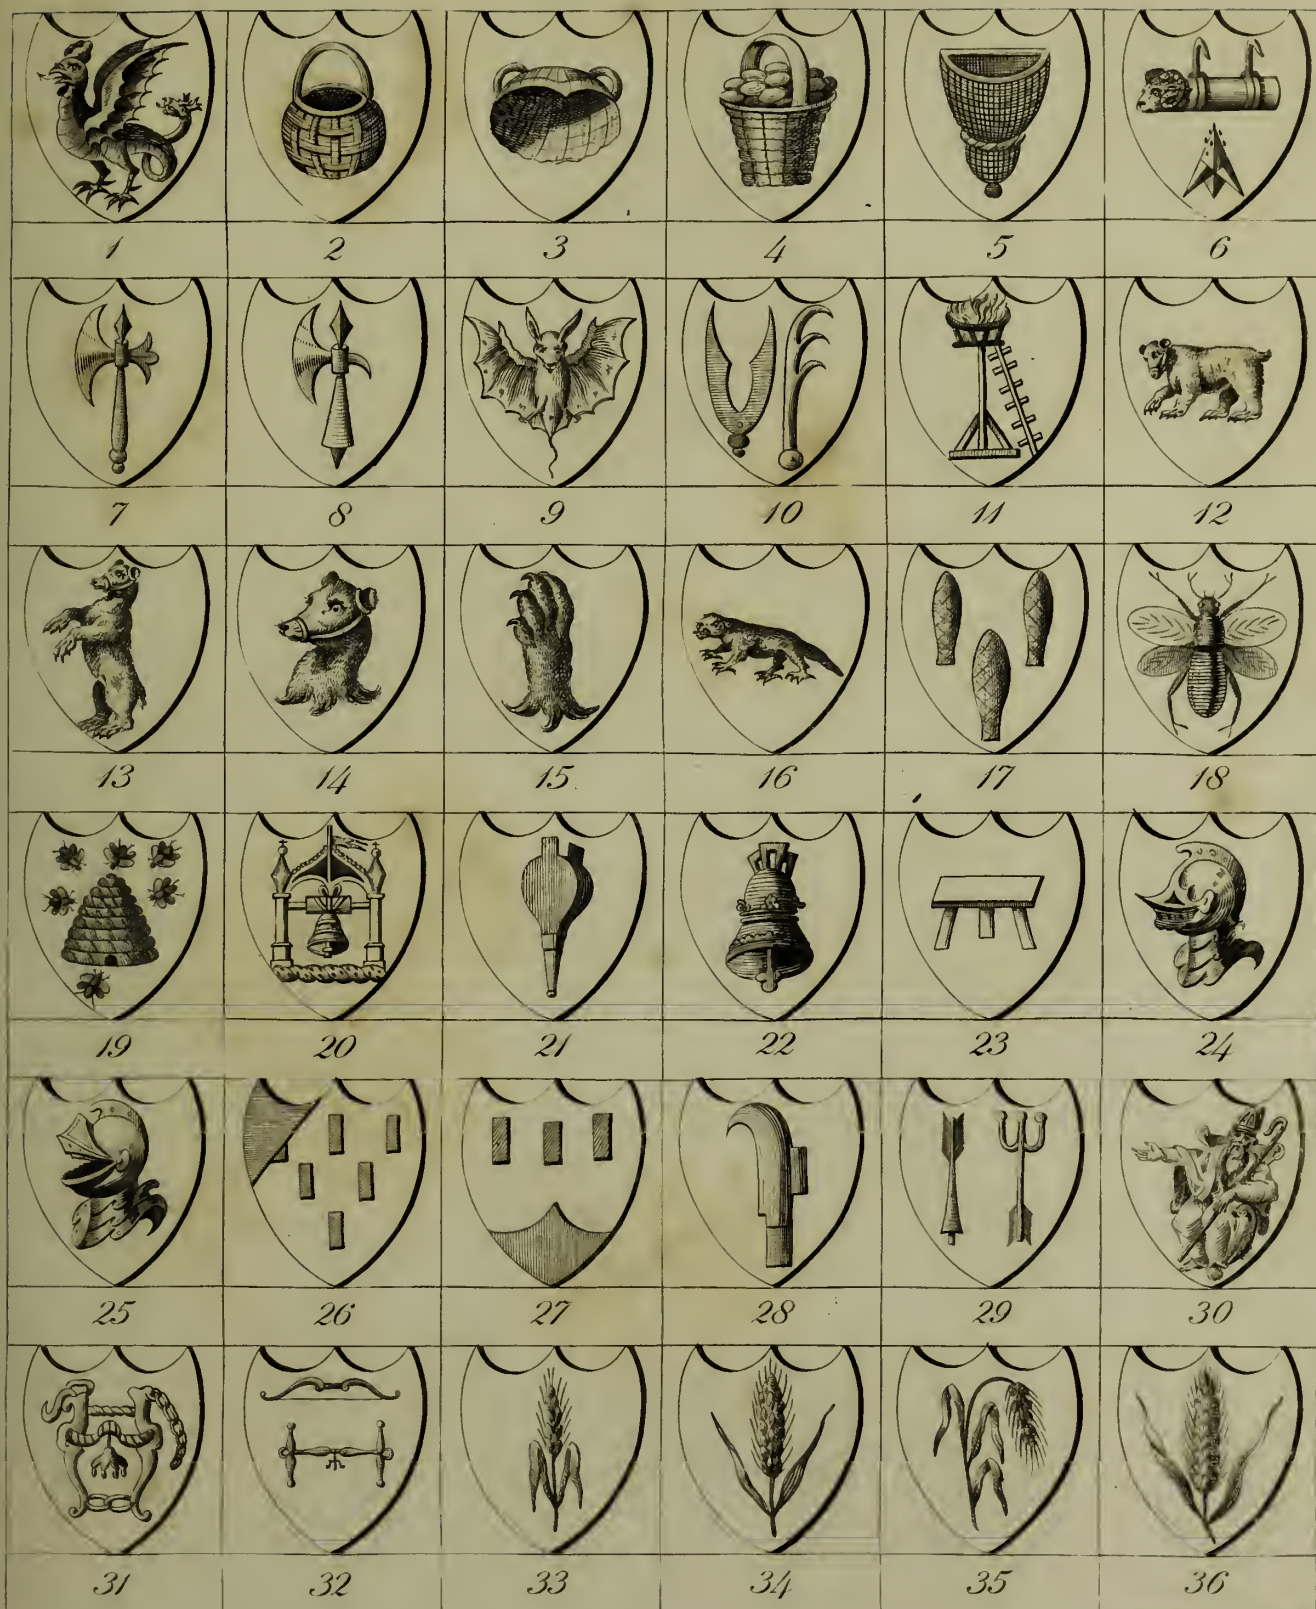 1 2 3 4 5 6
7 8 9 10 11 12
13 14 15. 16 17 18
19 20 21 22 23 24
25 26 27 28 29 30
31 32 33 34 35 36